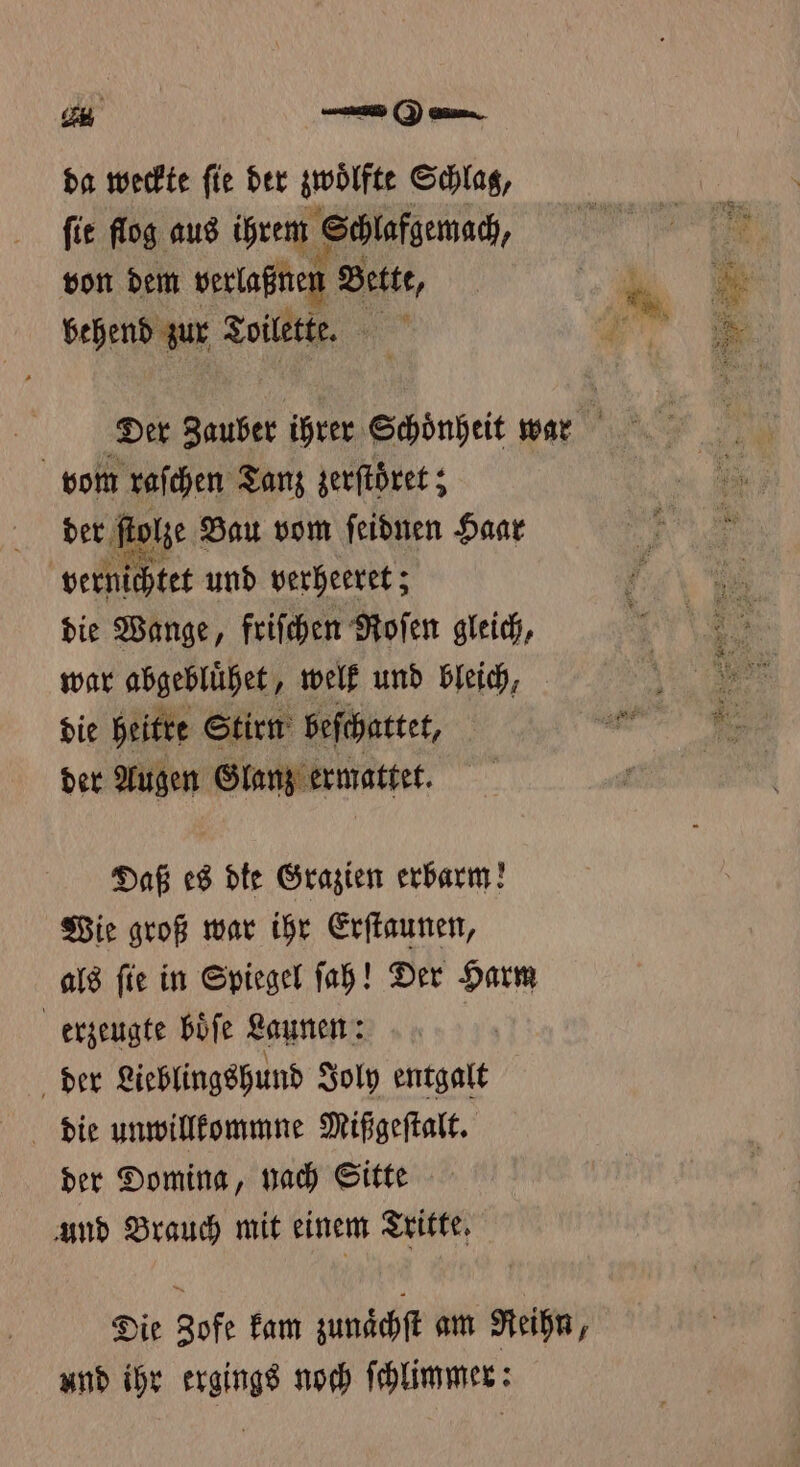 da weckte ſie der zwoͤlfte Schlag,
ſie flog aus ihrem Schlafgemach,
von dem verlaßnen Bette,
behend zur Toilette.
Der Zauber ihrer Schoͤnheit war
vom raſchen Tanz zerſtoͤret;
der ſtolze Bau vom ſeidnen Haar
vernichtet und verheeret;
die Wange, friſchen Roſen gleich,
war abgebluͤhet, welk und bleich,
die heitre Stirn beſchattet,
der Augen Glanz ermattet.
Daß es die Grazien erbarm!
Wie groß war ihr Erſtaunen,
als ſie in Spiegel ſah! Der Harm
erzeugte boͤſe Launen:
der Lieblingshund Joly entgalt
die unwillkommne Mißgeſtalt.
der Domina, nach Sitte
und Brauch mit einem Tritte.
Die Zofe kam zunaͤchſt am Reihn,
und ihr ergings noch ſchlimmer: